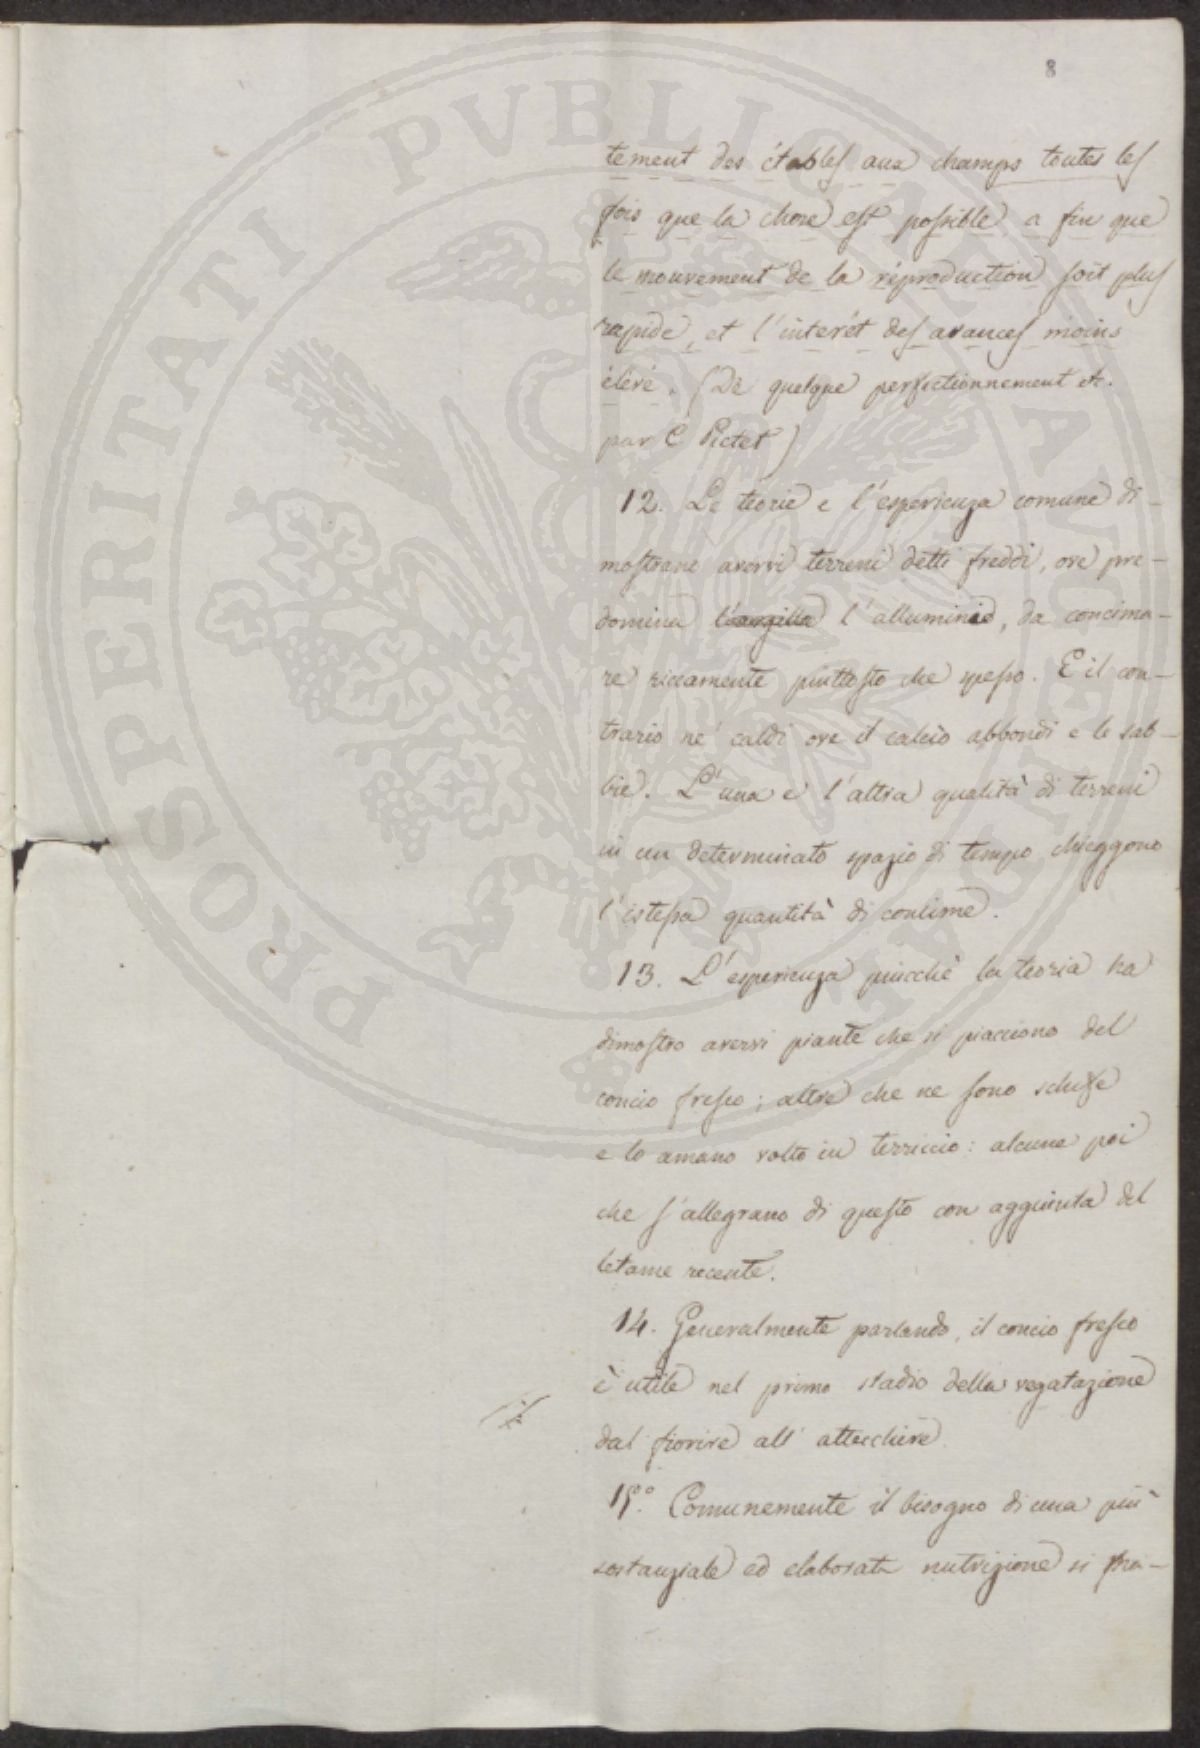 8
tement des étables aux champs toutes les
fois que la chose est possible, a fin que
le mouvement de la réproduction soit plus
rapide, et l'interét des avances moins
élévé. (De quelque perfectionnement etc.
par C Pictet)
12. Le teorie e l'esperienza comune di-
mostrano avervi terreni detti freddi, ove pre-
domina l'argilla l'alluminio, da concima-
re riccamente piuttosto che spesso. E il con-
trario ne' caldi ove il calcio abbondi e le sab-
bie. L'una e l'altra qualità di terreni
in un determinato spazio di tempo chieggono
l'istessa quantità di concime.
13. L'esperienza piucchè la teoria ha
dimostro avervi piante che si piacciono del
concio fresco; altre che ne sono schife
e lo amano volto in terriccio: alcune poi
che s'allegrano di questo con aggiunta del
letame recente.
14. Generalmente parlando, il concio fresco
è utile nel primo stadio della vegatazione
dal fiorire all'attecchire
15.° Comunemente il bisogno di una più
sostanziale ed elaborata nutrizione si
PROSPERITATI PVBLICAE AVGENDAE